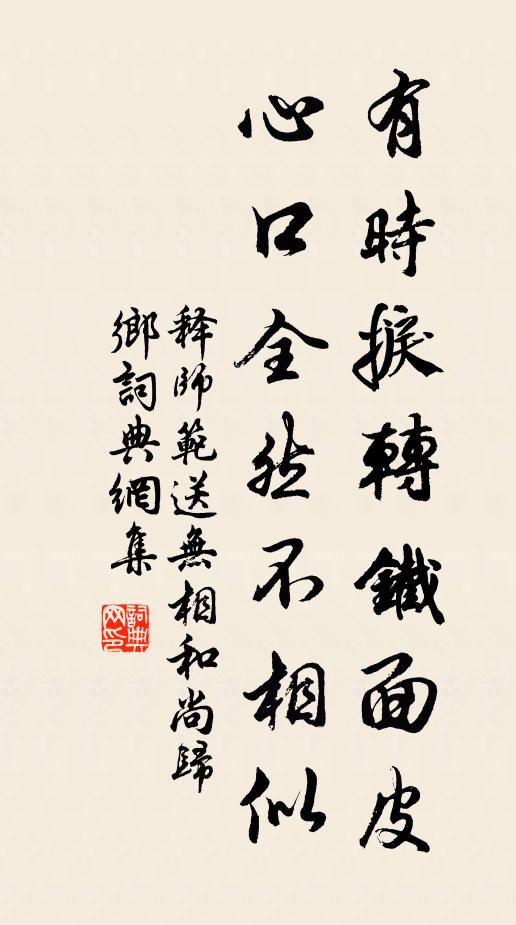 有時捩轉鐵面皮
心口全然不相似
释師範送無相和尚歸
鄉詞典網集
詞典
网印